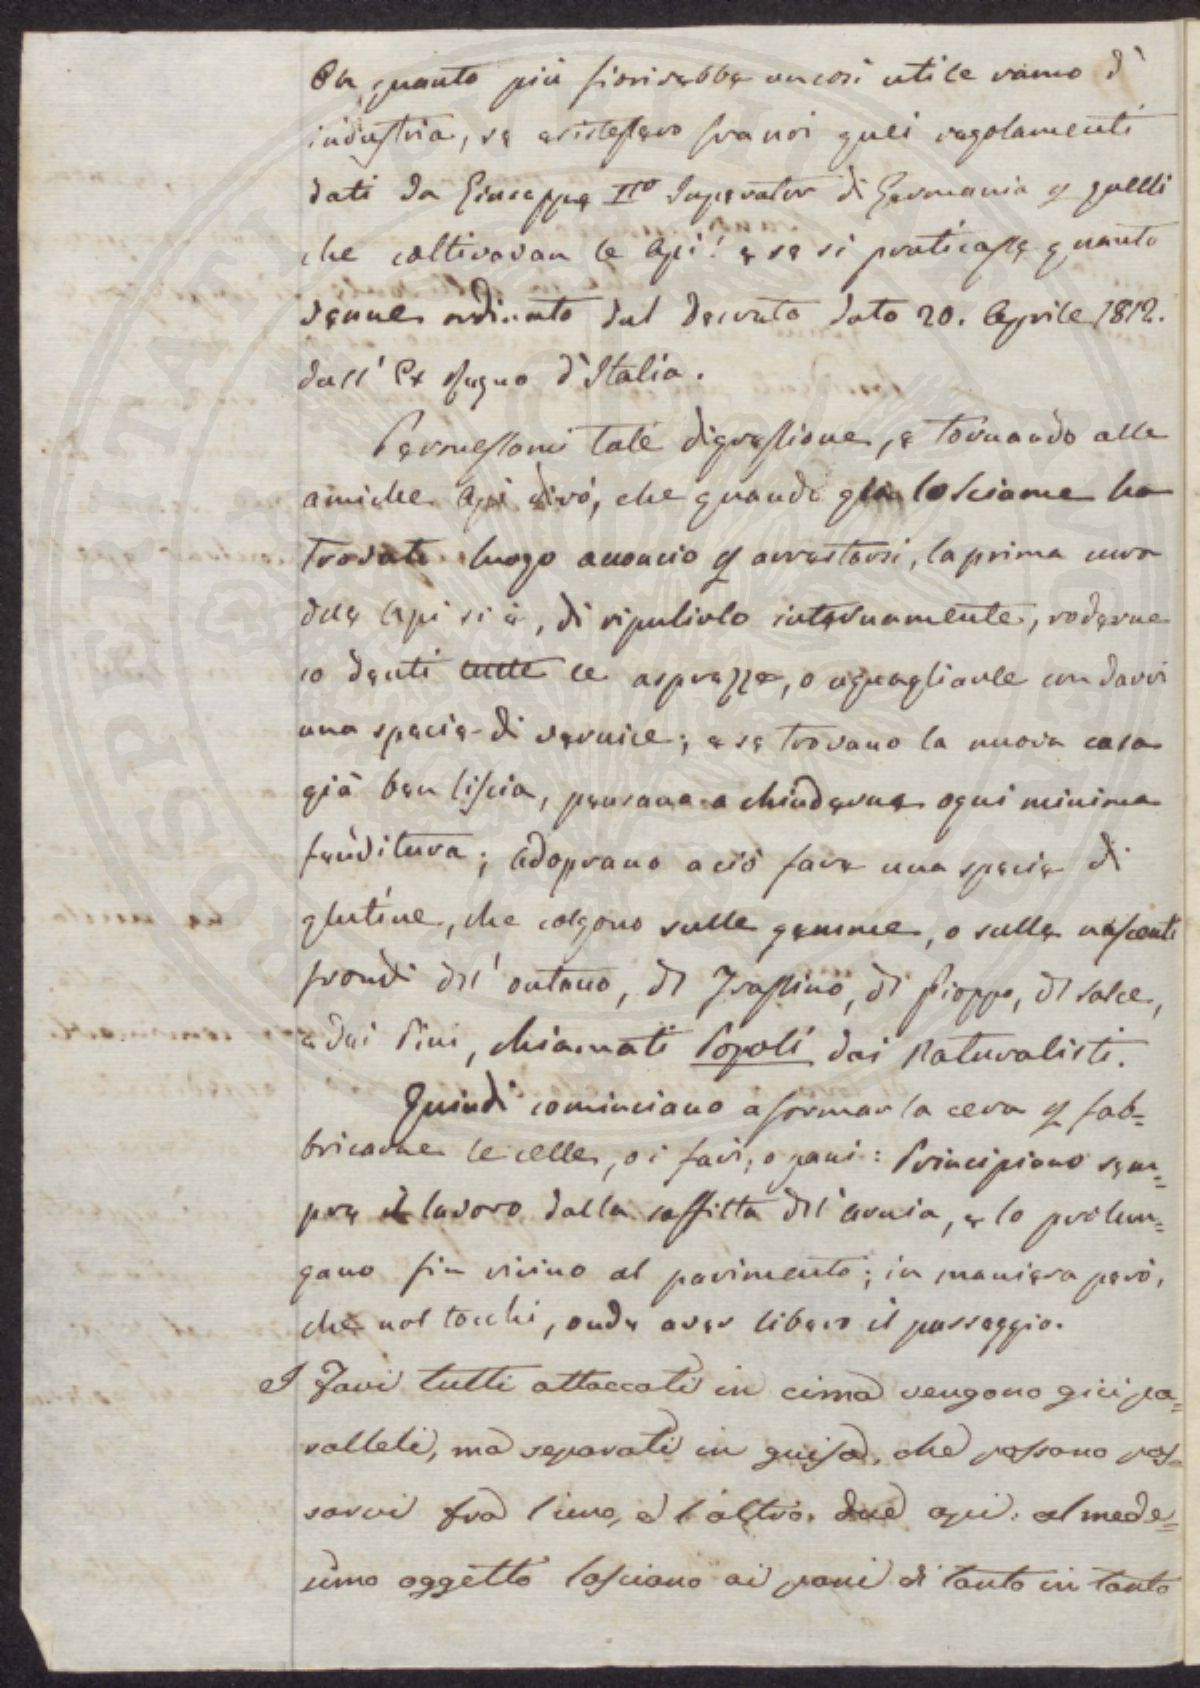 Oh quanto più fiorirebbe un così utile ramo di
industria, se esistessero fra noi quei regolamenti
dati da Giuseppe IIdo Imperator di Germania p quelli
che coltivavan le Api! e se si praticasse quanto
venne ordinato dal decreto dato 20. Aprile 1812.
dall' Ex Regno d'Italia.
Permessami tale digressione, e tornando alle
amiche Api dirò, che quando già lo sciame ha
trovato luogo acconcio p arrestarsi, la prima cura
delle Api si è, di ripulirlo internamente, roderne
co denti tutte le asprezze, o uguagliarle con darvi
una specie di vernice; e se trovano la nuova casa
già ben liscia, pensano a chiuderne ogni minima
fenditura; adoprano a ciò fare una specie di
glutine, che colgono sulle gemme, o sulle nascenti
frondi dell' ontano, del Frassino, del Pioppo, del salce,
e dei Pini, chiamati Popoli dai Naturalisti.
Quindi cominciano a formar la cera p fab=
bricarne le celle, o i favi, o pani: Principiano sem=
pre il lavoro dalla soffitta dell' arnia, e lo prolun=
gano fin vicino al pavimento; in maniera però,
che nol tocchi, onde aver libero il passaggio.
I Favi tutti attaccati in cima vengono giù pa=
ralleli, ma separati in guisa, che possano pas=
sarvi fra l'uno, e l'altro due api: al mede=
simo oggetto lasciano ai pani di tanto in tanto